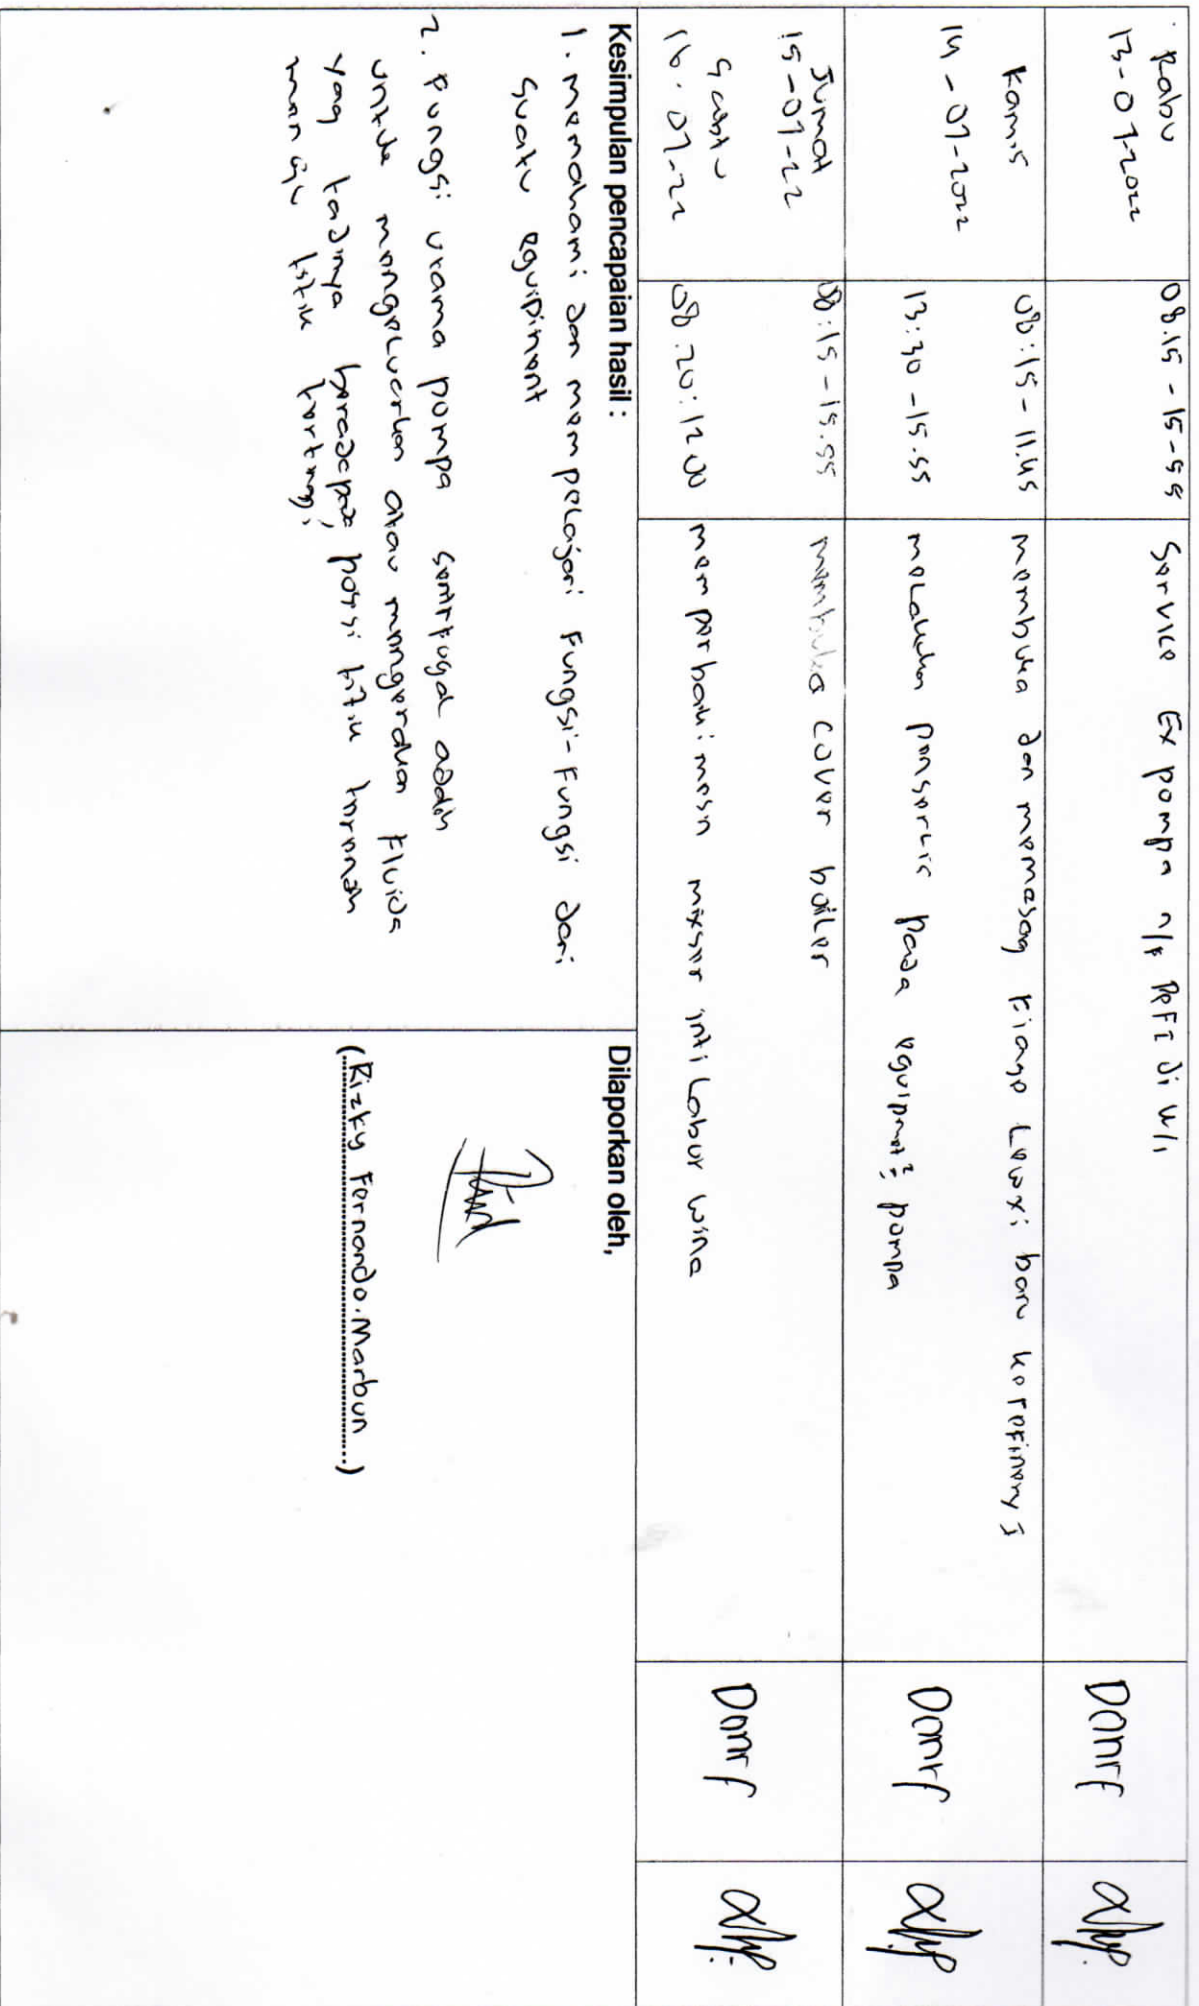 Rabu
13-07-2022
08.15 - 15-55
Service Ex pompa
Kamis
14-07-2022
08:15 - 11.45
membuka dan memasang Flange Lewxi baru ke refinery I
13:30 - 15.55
melakukan pada equipment² pompa
Jumat
15-07-22
08:15 - 15.55
membuka cover boiler
Sabtu
16.07-22
08.20:12.00
memperbaiki mesn mixser inti Labur wina
Kesimpulan pencapaian hasil :
1. memahami dan mempelajari Fungsi-Fungsi dari
Suatu equipment
2. Fungsi utama pompa sentrfugal adalah
untuk mengeluarkan atau mengerakan Fluida
yag tadinya berada pada posisi titik terendah
menuju titik tertinggi
Dilaporkan oleh,
(Rizky Fernando.Marbun)